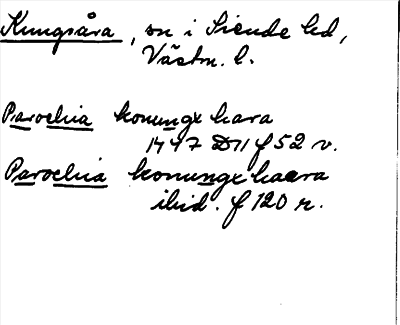 Kungsåra, sn i Siende hd,
Västm. l.
Parochia konungx hara
1447 D11 f 52 v.
Parochia konungx haara
ibid. f 120 r.